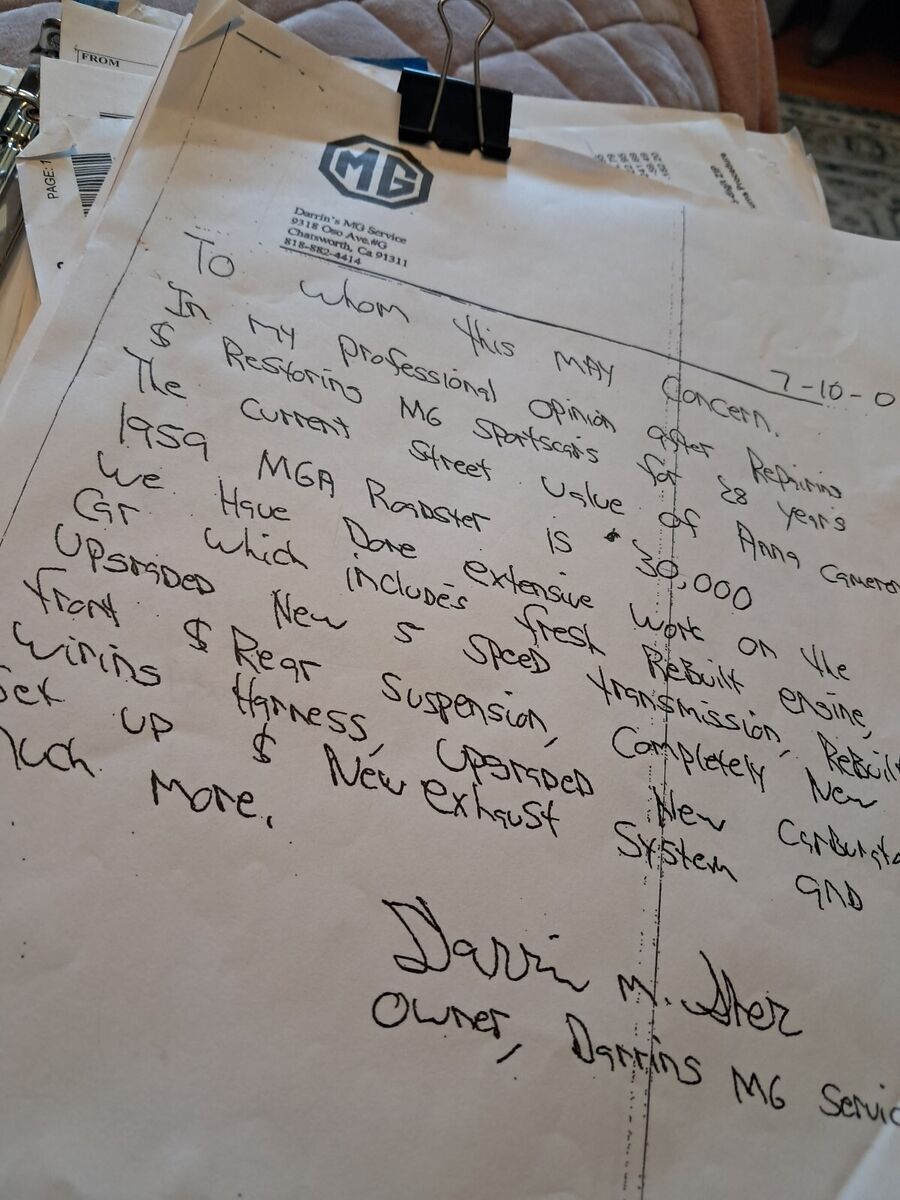 FROM
PAGE: 1
MG
Darrin's MG Service
9318 Oso Ave.#G
Chatsworth, Ca 91311
818-882-4414
7-10-0
To whom this MAY Concern.
In My professional Opinion after Repairing
$ Restoring MG sportscars for 28 years
The current street value of Anna Cameron
1959 MGA Roadster is $30,000
We Have Done extensive work on the
Car which includes fresh ReBuilt engine,
UpgradeD New 5 speeD transmission, ReBuilt
front $ Rear Suspension, Completely New
wiring Harness, UpgradeD New Carburato
Set up $ New exhaust System anD
Much More.
Darrin M.
Owner, Darrins MG Servic